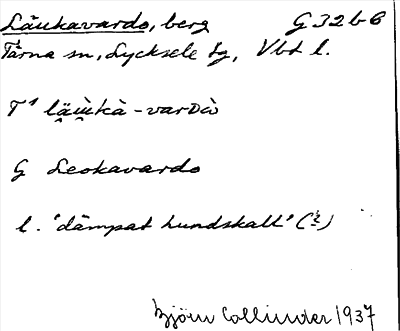 Läukavardo, berg G32b6
Tärna sn, Lycksele lg, Vbt l.
T¹ läu̯kà-varDò
G Leokavardo
l. 'dämpat hundskall' (?)
Björn Collinder 1937